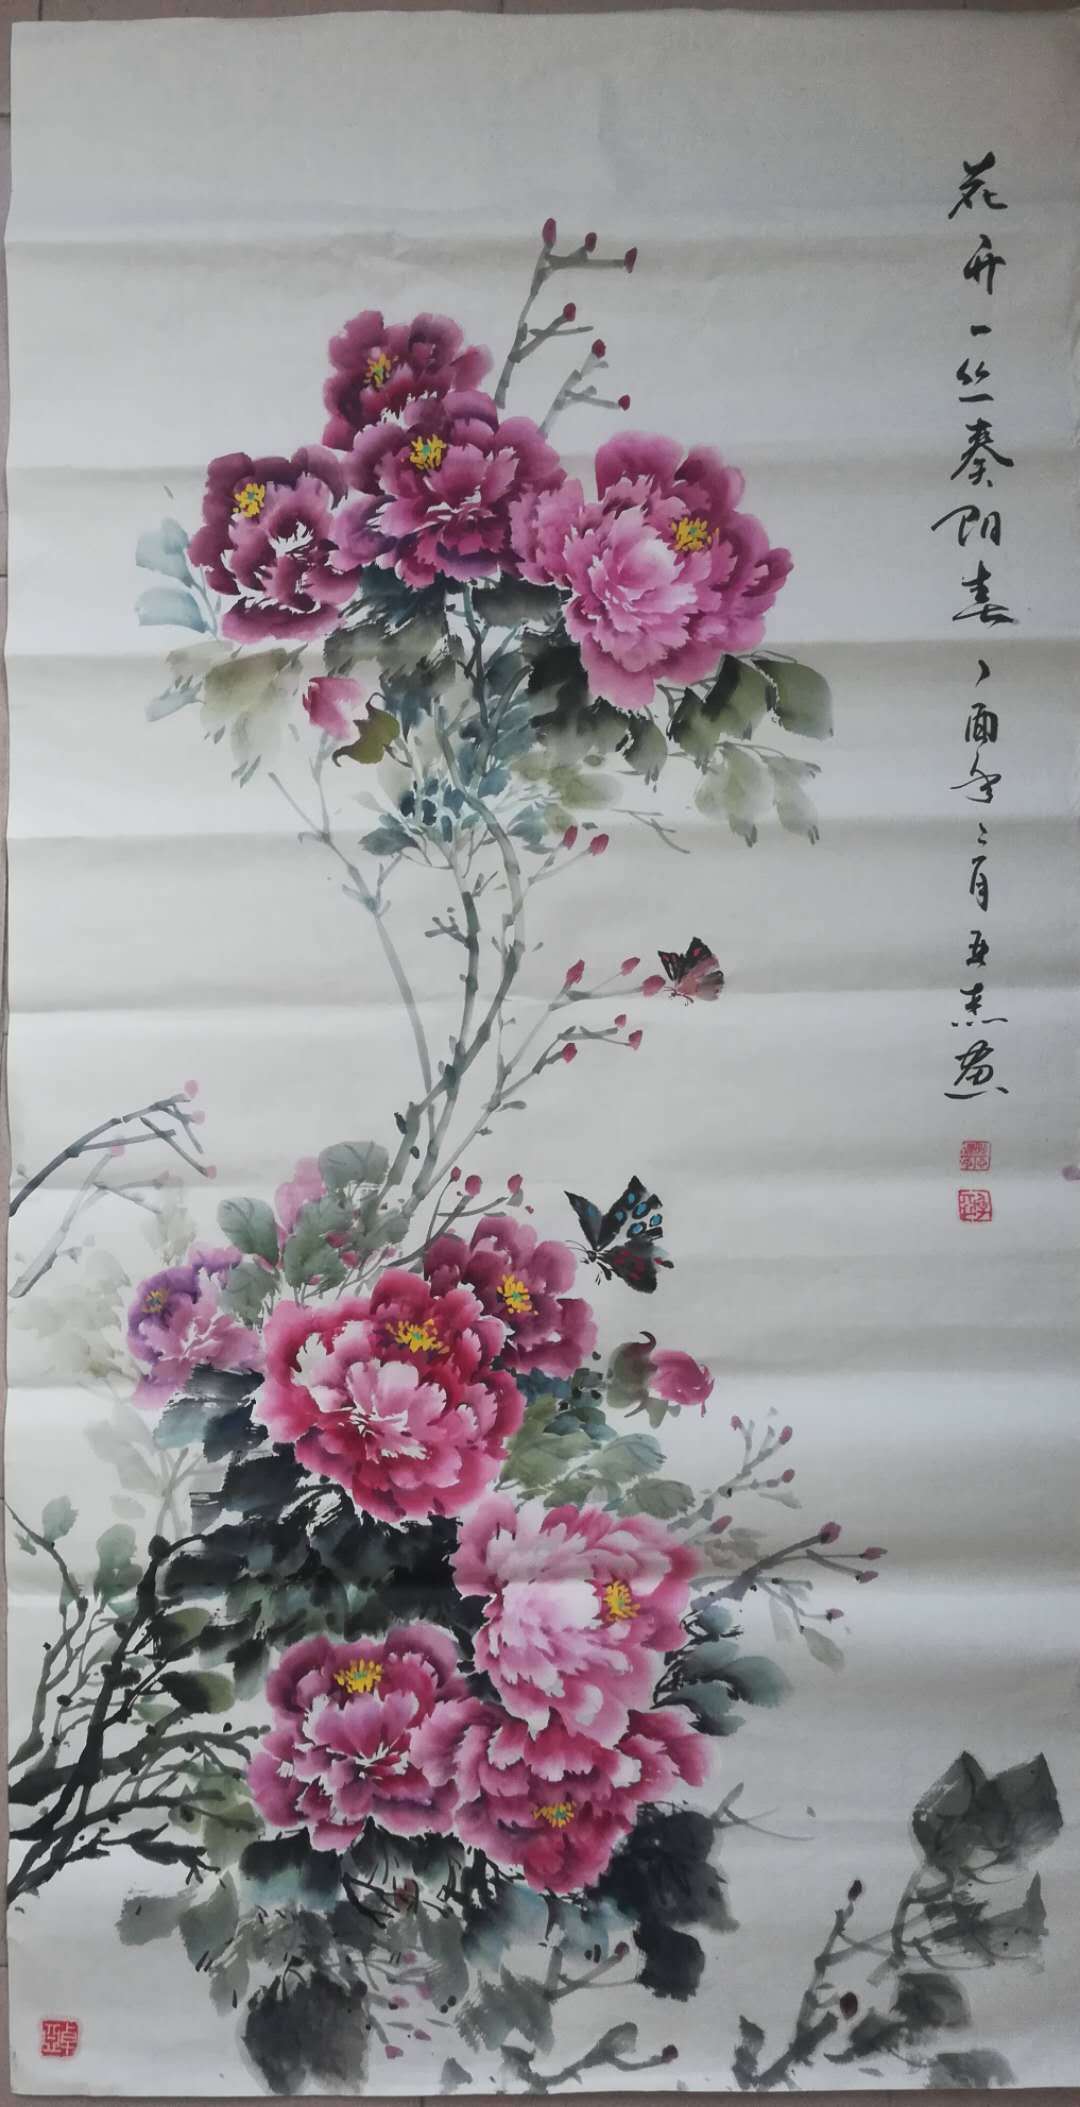 花开一丛奏阳春丁酉年二月亚杰画